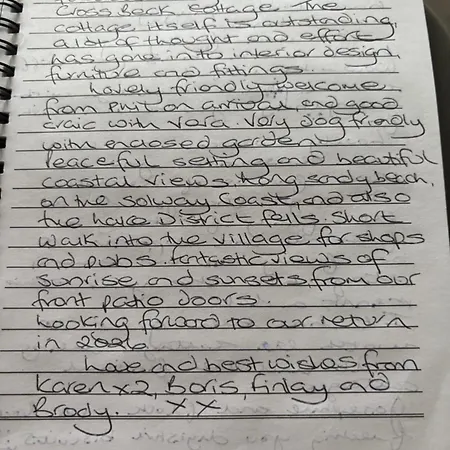 Crossback Cottage. The
cottage itself is outstanding,
a lot of thought and effort
has gone into interior design,
furniture and fittings.
Lovely friendly welcome
from Phil on arrival, and good
craic with Vera. Very dog friendly
with enclosed garden.
Peaceful setting and beautiful
coastal views, long sandy beach,
on the Solway Coast, and also
the Lake District fells. Short
walk into the village for shops
and pubs. Fantastic views of
sunrise and sunsets from our
front patio doors.
Looking forward to our return
in 2026
Love and best wishes from
Karen x2, Boris, Finlay and
Brody. X X